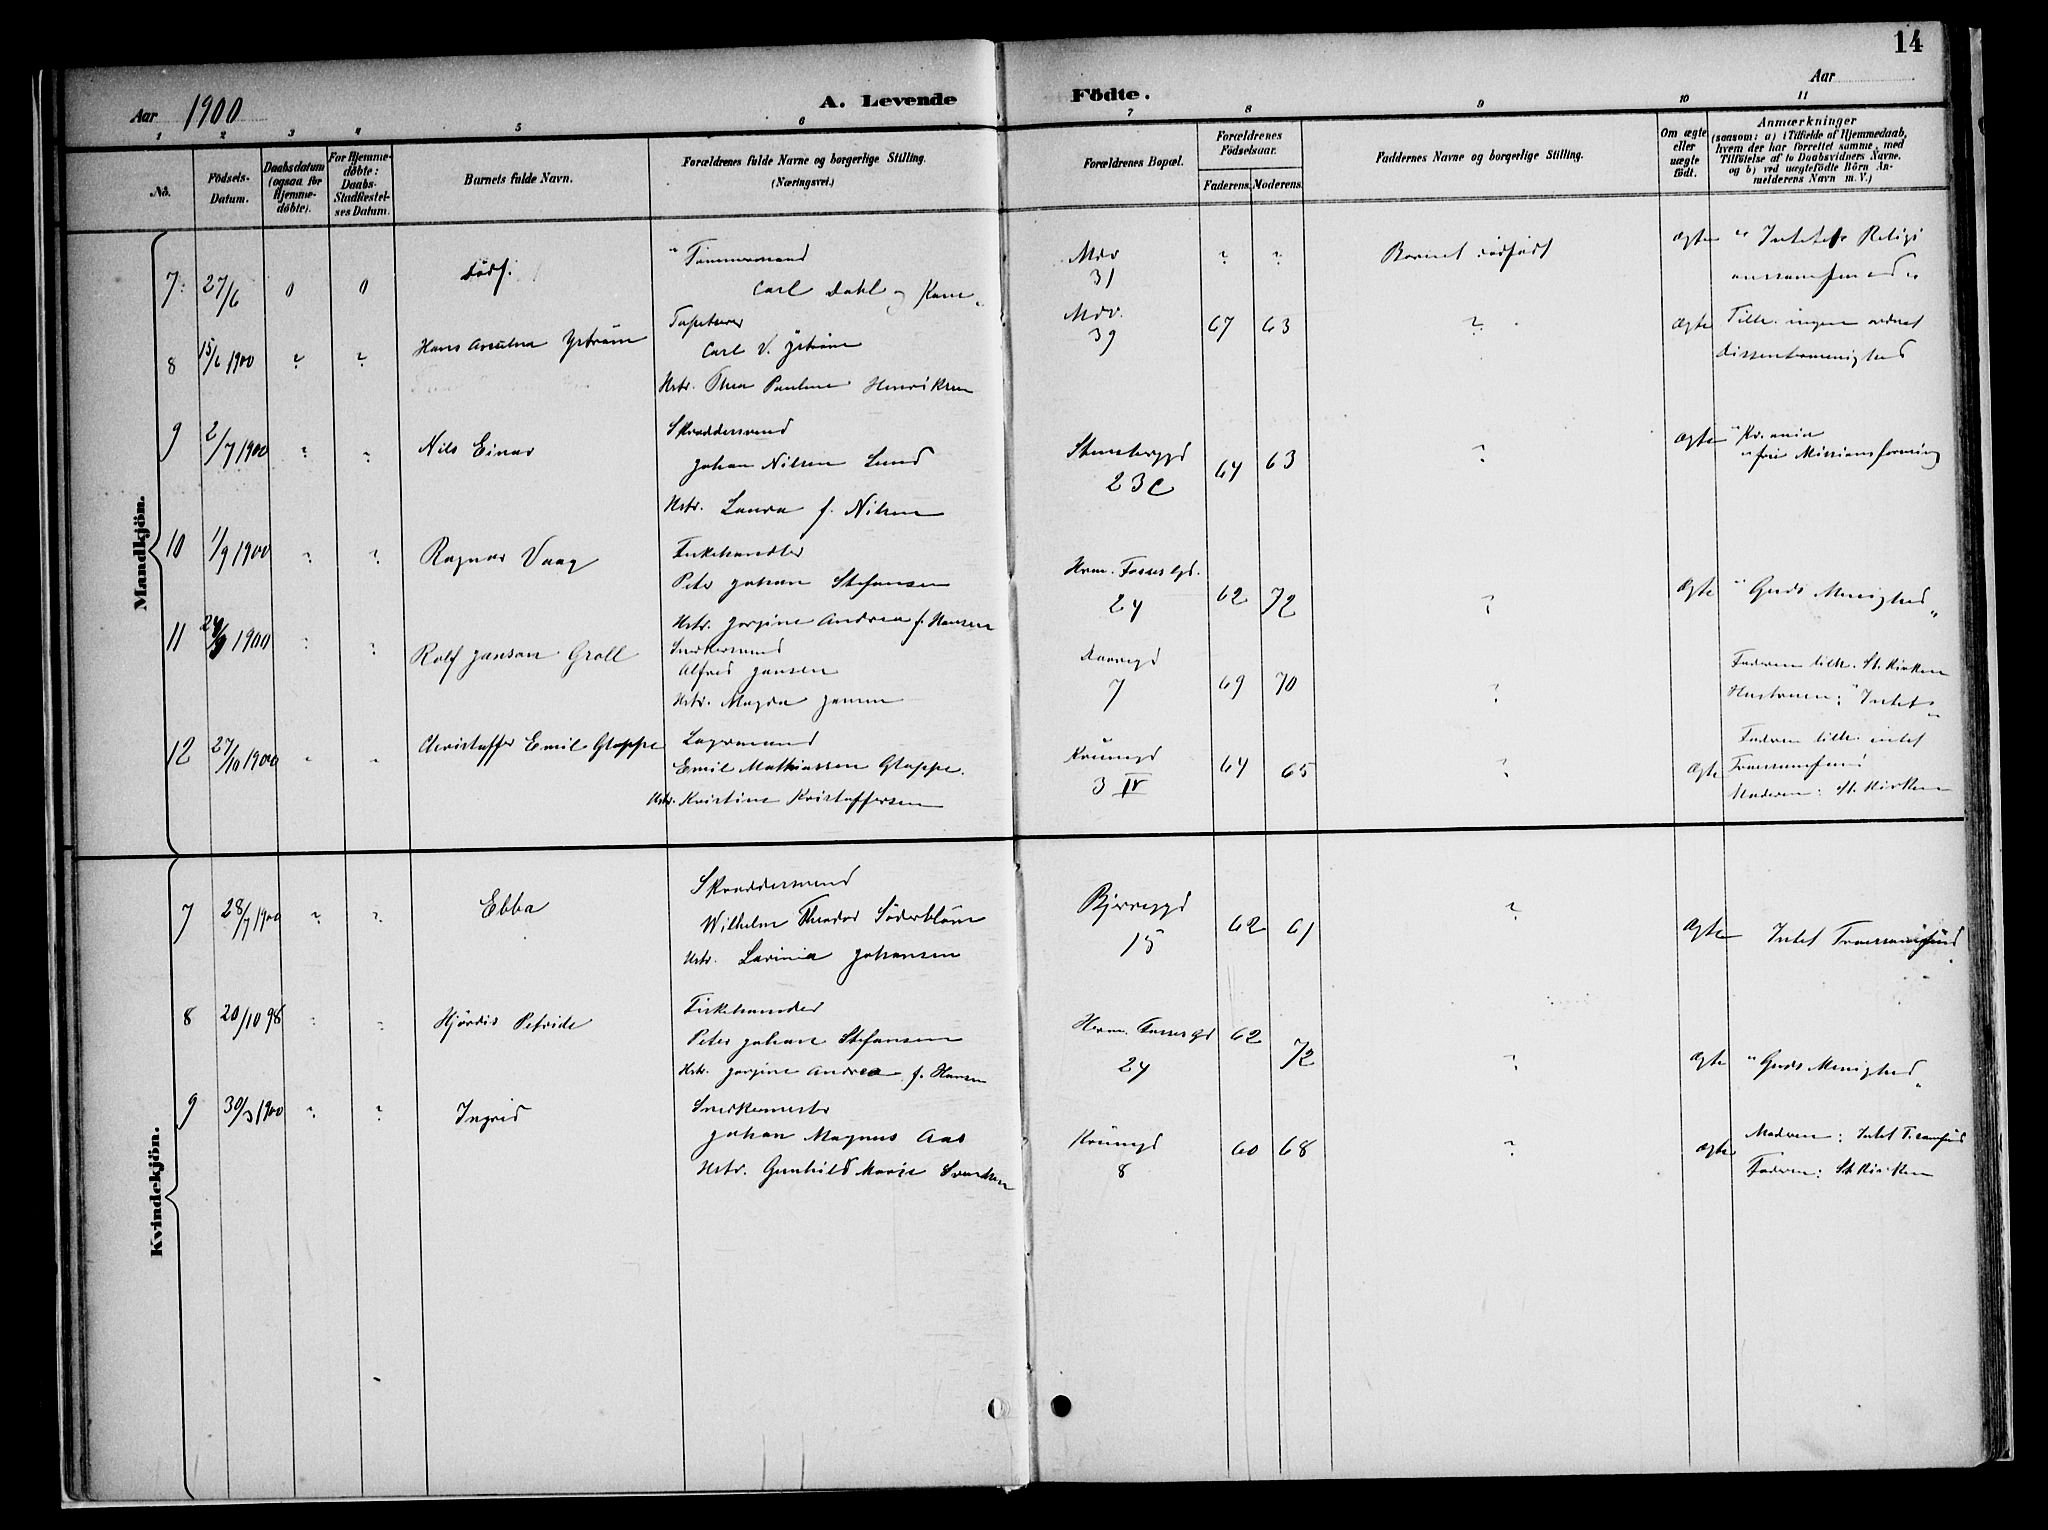 14
Aar 1900
A. Levende
Födte.
Aar
1 2 3 4 5 6 7 8 9 10 11
No.
Födsels-
Datum.
Daabsdatum
(ogsaa for
Hjemme-
døbte).
For Hjemme-
døbte:
Daabs-
Stadfæstel-
ses Datum.
Barnets fulde Navn.
Forældrenes fulde Navne og borgerlige Stilling.
(Næringsvei.)
Forældrenes Bopæl.
Forældrenes
Födselsaar.
Faderens. Moderens.
Faddernes Navne og borgerlige Stilling.
Om ægte
eller
uægte
født.
Anmærkninger
(saasom: a) i Tilfælde af Hjemmedaab,
hvem der har forrettet samme, med
Tilføielse af to Daabsvidners Navne,
og b) ved uægtefødte Börn An-
melderens Navn m. V.)
Mandkjön.
7 27/6 0 0
Tømmermand
Carl Dahl og Kone
Mdv
31
" "
Barnet dødfødt
Ægte
" Intet Religi
onssamfund "
8 15/6 1900 " "
Hans Ystrøm
Tapetserer
Carl V. Ystrøm
Hstr. Thea Pauline Henriksen
Mdv.
39
67 63
"
Ægte
Tilh. ingen ordnet
dissentermenighed
9 2/7 1900 " "
Nils Einar
Skræddersvend
Johan Nilsen Lund
Hstr. Laura f. Nilsen
Stensberggd
23 C
64 63
"
Ægte
" Kr.ania
frie Missionsforening
10 1/9 1900 " "
Ragnar Vaag
Fiskehandler
Peter Johan Stefansen
Hstr. Jorgine Andrea f. Hansen
Herm. Fossesgd.
24
62 72
"
Ægte
" Guds Menighed "
11 24/9 1900 " "
Rolf Janson Groll
Snekkersvend
Alfred Jansen
Hstr. Magda Jansen
7
69 70
"
Faderen tilh. St. Kirken
Hustruen: " Intet "
12 27/10 1900 " "
Christoffer Emil Gloppe
Lagermand
Emil Mathiassen Gloppe.
Hstr. Kristine Kristoffersen
Kruunsgd
3 IV
64 65
"
Ægte
Faderen tilh. intet
Troessamfund
Moderen: St. Kirken
Kvindekjön.
7 28/7 1900 " "
Ebba
Skræddersvend
Wilhelm Theodor Söderblöm
Hstr. Lavinia Johansen
Bjerreggd
15
62 61
"
Ægte
Intet Troessamfund
8 20/10 98 " "
Hjørdis Petride
Fiskehandler
Peter Johan Stefansen
Hstr. Jorgine Andrea f. Hansen
Herm. Fossesgd
24
62 72
"
Ægte
" Guds Menighed "
9 30/3 1900 " "
Ingrid
Snedkermester
Johan Magnus Aas
Hstr. Gunhild Marie Svendsen
8
60 68
"
Ægte
Moderen: Intet Tr.samfund
Faderen: St. Kirken